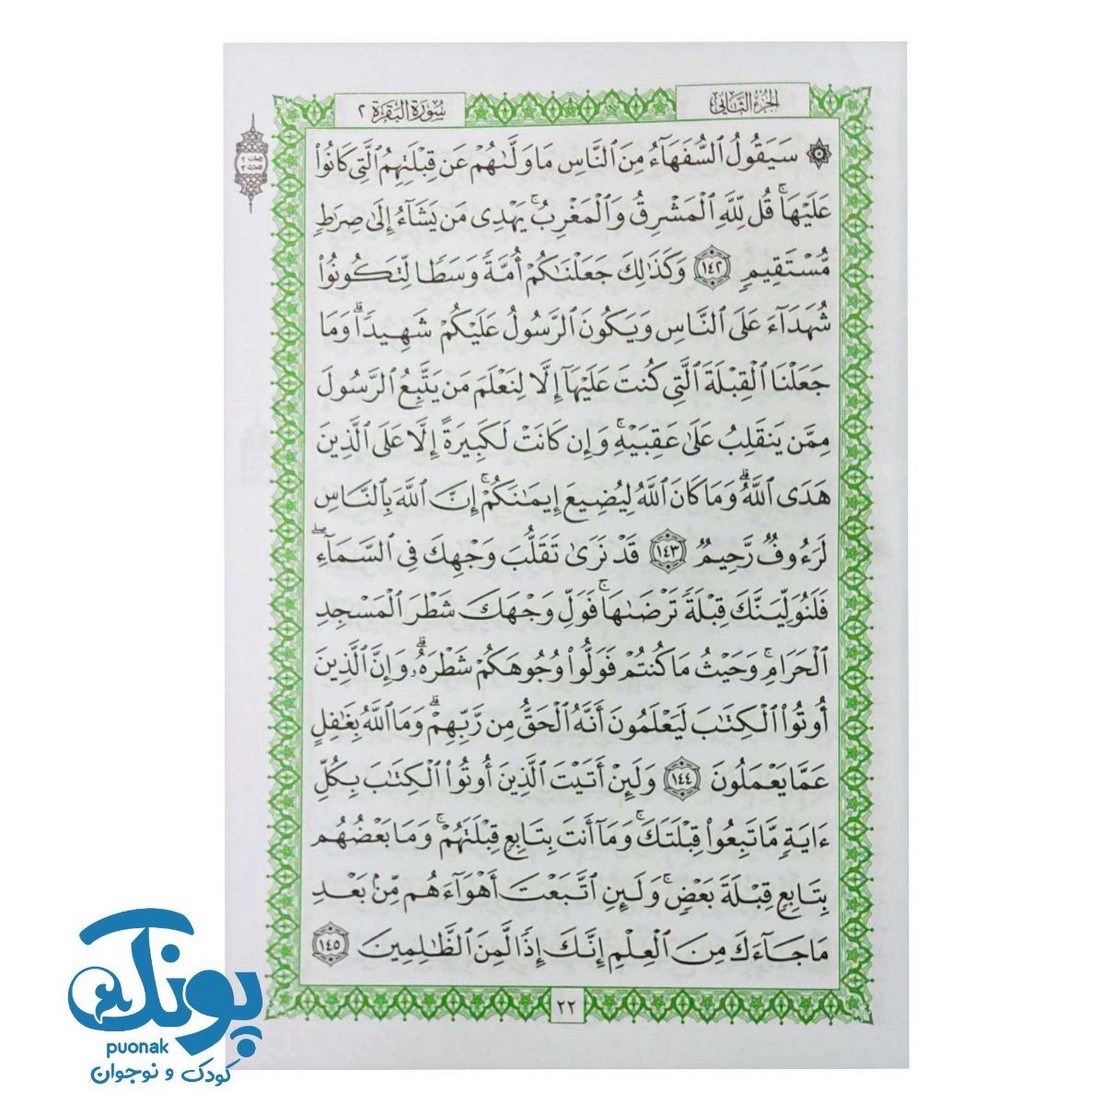 الجزء الثاني
سورة البقرة ٢
۞ سَيَقُولُ ٱلسُّفَهَآءُ مِنَ ٱلنَّاسِ مَا وَلَّىٰهُمْ عَن قِبْلَتِهِمُ ٱلَّتِى كَانُوا۟
عَلَيْهَا ۚ قُل لِّلَّهِ ٱلْمَشْرِقُ وَٱلْمَغْرِبُ ۚ يَهْدِى مَن يَشَآءُ إِلَىٰ صِرَٰطٍ
مُّسْتَقِيمٍ ١٤٢ وَكَذَٰلِكَ جَعَلْنَٰكُمْ أُمَّةً وَسَطًا لِّتَكُونُوا۟
شُهَدَآءَ عَلَى ٱلنَّاسِ وَيَكُونَ ٱلرَّسُولُ عَلَيْكُمْ شَهِيدًا ۗ وَمَا
جَعَلْنَا ٱلْقِبْلَةَ ٱلَّتِى كُنتَ عَلَيْهَآ إِلَّا لِنَعْلَمَ مَن يَتَّبِعُ ٱلرَّسُولَ
مِمَّن يَنقَلِبُ عَلَىٰ عَقِبَيْهِ ۚ وَإِن كَانَتْ لَكَبِيرَةً إِلَّا عَلَى ٱلَّذِينَ
هَدَى ٱللَّهُ ۗ وَمَا كَانَ ٱللَّهُ لِيُضِيعَ إِيمَٰنَكُمْ ۚ إِنَّ ٱللَّهَ بِٱلنَّاسِ
لَرَءُوفٌ رَّحِيمٌ ١٤٣ قَدْ نَرَىٰ تَقَلُّبَ وَجْهِكَ فِى ٱلسَّمَآءِ ۖ
فَلَنُوَلِّيَنَّكَ قِبْلَةً تَرْضَىٰهَا ۚ فَوَلِّ وَجْهَكَ شَطْرَ ٱلْمَسْجِدِ
ٱلْحَرَامِ ۚ وَحَيْثُ مَا كُنتُمْ فَوَلُّوا۟ وُجُوهَكُمْ شَطْرَهُۥ ۗ وَإِنَّ ٱلَّذِينَ
أُوتُوا۟ ٱلْكِتَٰبَ لَيَعْلَمُونَ أَنَّهُ ٱلْحَقُّ مِن رَّبِّهِمْ ۗ وَمَا ٱللَّهُ بِغَٰفِلٍ
عَمَّا يَعْمَلُونَ ١٤٤ وَلَئِنْ أَتَيْتَ ٱلَّذِينَ أُوتُوا۟ ٱلْكِتَٰبَ بِكُلِّ
ءَايَةٍ مَّا تَبِعُوا۟ قِبْلَتَكَ ۚ وَمَآ أَنتَ بِتَابِعٍ قِبْلَتَهُمْ ۚ وَمَا بَعْضُهُم
بِتَابِعٍ قِبْلَةَ بَعْضٍ ۚ وَلَئِنِ ٱتَّبَعْتَ أَهْوَآءَهُم مِّنۢ بَعْدِ
مَا جَآءَكَ مِنَ ٱلْعِلْمِ إِنَّكَ إِذًا لَّمِنَ ٱلظَّٰلِمِينَ ١٤٥
٢٢
پونک
puonak
کودک و نوجوان